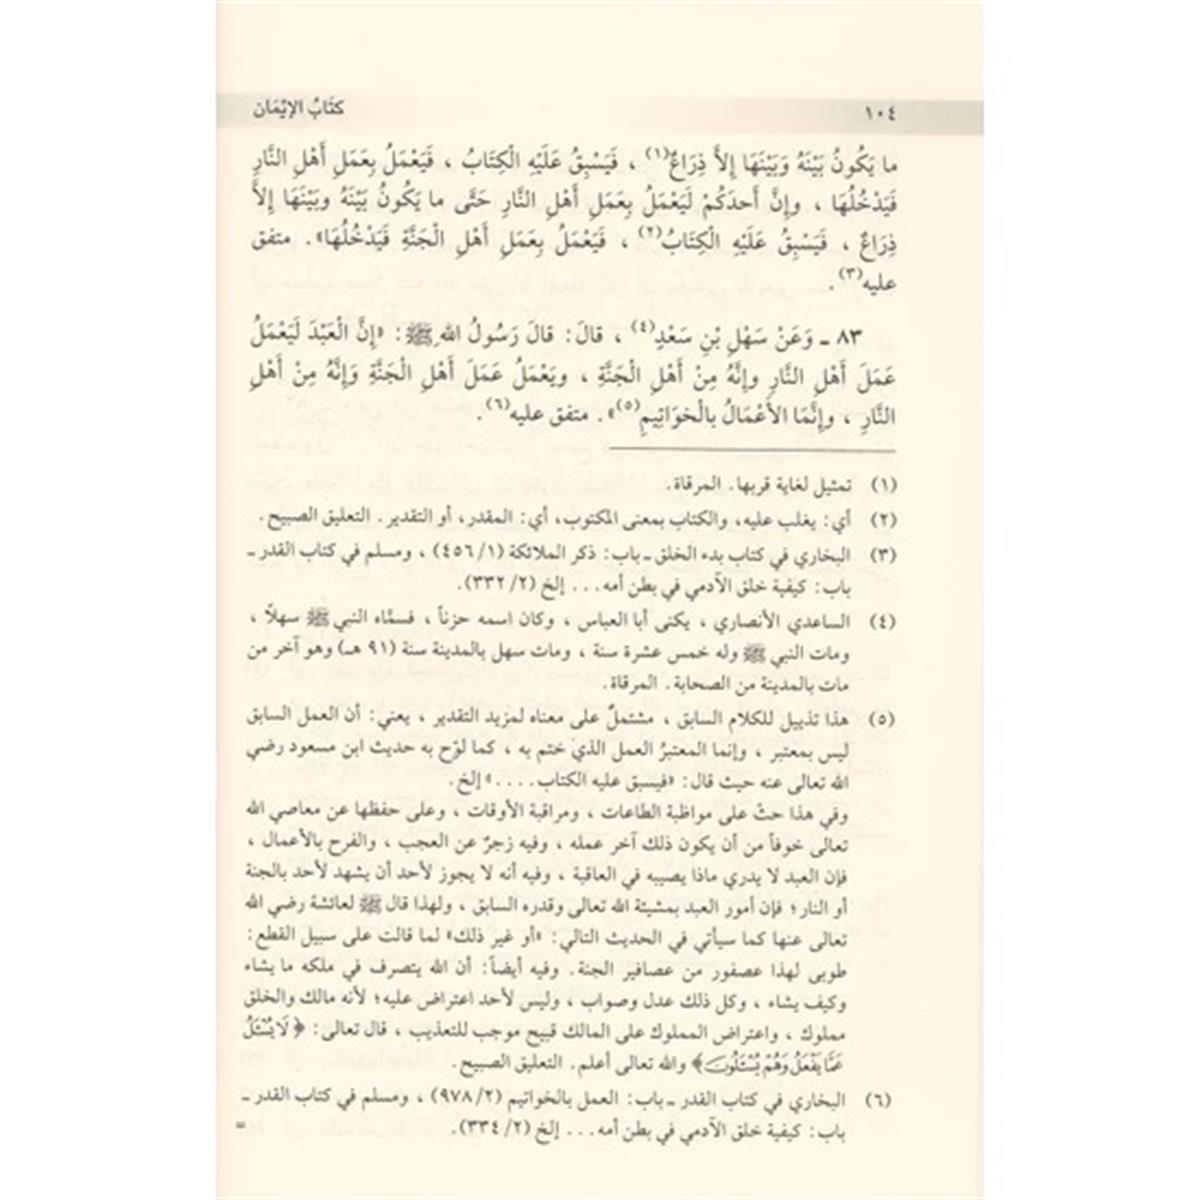 ١٠٤ كتَابُ الإيْمَان
ما يَكُونُ بَيْنَهُ وَبَيْنَهَا إِلاَّ ذِرَاعٌ(١) ، فَيَسْبِقُ عَلَيْهِ الْكِتَابُ ، فَيَعْمَلُ بِعَمَلِ أَهْلِ النَّارِ
فَيَدْخُلُهَا ، وإِنَّ أَحدَكُمْ لَيَعْمَلُ بِعَمَلِ أَهْلِ النَّارِ حَتَّى ما يَكُونُ بَيْنَهُ وبَيْنَهَا إِلاَّ
ذِرَاعٌ ، فَيَسْبِقُ عَلَيْهِ الْكِتَابُ(٢) ، فَيَعْمَلُ بِعَمَلِ أَهْلِ الْجَنَّةِ فَيَدْخُلُهَا» . متفق
عليه(٣).
٨٣ ـ وَعَنْ سَهْلِ بْنِ سَعْدٍ(٤) ، قالَ: قالَ رَسُولُ اللهِ ﷺ: «إِنَّ الْعَبْدَ لَيَعْمَلُ
عَمَلَ أَهْلِ النَّارِ وإِنَّهُ مِنْ أَهْلِ الْجَنَّةِ ، ويَعْمَلُ عَمَلَ أَهْلِ الْجَنَّةِ وَإِنَّهُ مِنْ أَهْلِ
النَّارِ ، وإِنَّمَا الأَعْمَالُ بالْخَوَاتِيمِ(٥)» . متفق عليه(٦).
(١) تمثيل لغاية قربها. المرقاة.
(٢) أي: يغلب عليه، والكتاب بمعنى المكتوب، أي: المقدر، أو التقدير. التعليق الصبيح.
(٣) البخاري في كتاب بدء الخلق ـ باب: ذكر الملائكة (١/ ٤٥٦) ، ومسلم في كتاب القدر ـ
باب: كيفية خلق الآدمي في بطن أمه... إلخ (٢/ ٣٣٢).
(٤) الساعدي الأنصاري ، يكنى أبا العباس ، وكان اسمه حزناً ، فسمَّاه النبي ﷺ سهلاً ،
ومات النبي ﷺ وله خمس عشرة سنة ، ومات سهل بالمدينة سنة (٩١ هـ) وهو آخر من
مات بالمدينة من الصحابة. المرقاة.
(٥) هذا تذييل للكلام السابق ، مشتملٌ على معناه لمزيد التقدير ، يعني: أن العمل السابق
ليس بمعتبر ، وإنما المعتبرُ العمل الذي ختم به ، كما لوّح به حديث ابن مسعود رضي
الله تعالى عنه حيث قال: «فيسبق عليه الكتاب....» إلخ.
وفي هذا حثّ على مواظبة الطاعات ، ومراقبة الأوقات ، وعلى حفظها عن معاصي الله
تعالى خوفاً من أن يكون ذلك آخر عمله ، وفيه زجرٌ عن العجب ، والفرح بالأعمال ،
فإن العبد لا يدري ماذا يصيبه في العاقبة ، وفيه أنه لا يجوز لأحد أن يشهد لأحد بالجنة
أو النار؛ فإن أمور العبد بمشيئة الله تعالى وقدره السابق ، ولهذا قال ﷺ لعائشة رضي الله
تعالى عنها كما سيأتي في الحديث التالي: «أو غير ذلك» لما قالت على سبيل القطع:
طوبى لهذا عصفور من عصافير الجنة. وفيه أيضاً: أن الله يتصرف في ملكه ما يشاء
وكيف يشاء ، وكل ذلك عدل وصواب ، وليس لأحد اعتراض عليه؛ لأنه مالك والخلق
مملوك ، واعتراض المملوك على المالك قبيح موجب للتعذيب ، قال تعالى: ﴿ لَا يُسْـَٔلُ
عَمَّا يَفْعَلُ وَهُمْ يُسْـَٔلُونَ﴾ والله تعالى أعلم. التعليق الصبيح.
(٦) البخاري في كتاب القدر ـ باب: العمل بالخواتيم (٢/ ٩٧٨) ، ومسلم في كتاب القدر ـ
باب: كيفية خلق الآدمي في بطن أمه... إلخ (٢/ ٣٣٤). =